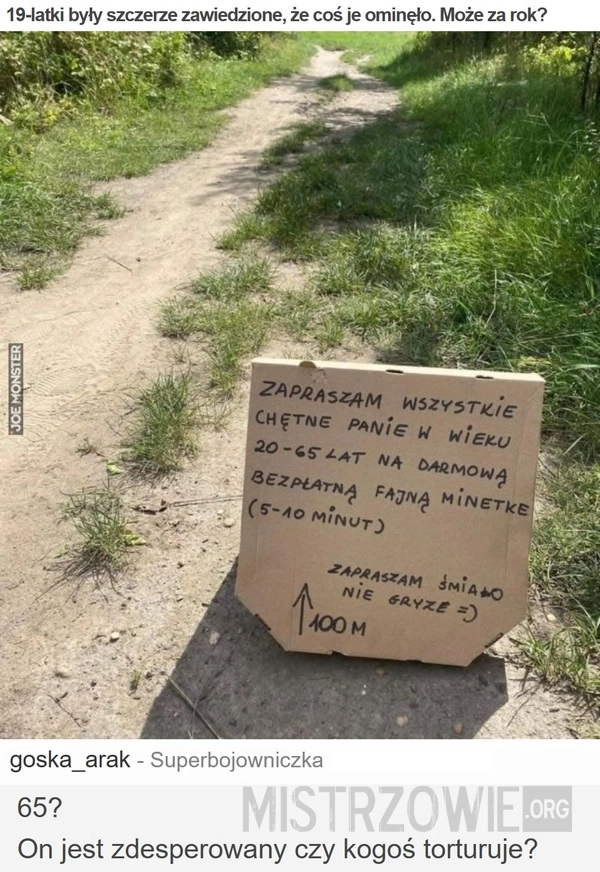 19-latki były szczerze zawiedzione, że coś je ominęło. Może za rok?
JOE MONSTER
ZAPRASZAM WSZYSTKIE
CHĘTNE PANIE W WIEKU
20-65 LAT NA DARMOWĄ
BEZPŁATNĄ FAJNĄ MINETKE
(5-10 MINUT)
ZAPRASZAM ŚMIAŁO
NIE GRYZE =)
↑100 M
goska_arak - Superbojowniczka
65?
MISTRZOWIE.ORG
On jest zdesperowany czy kogoś torturuje?